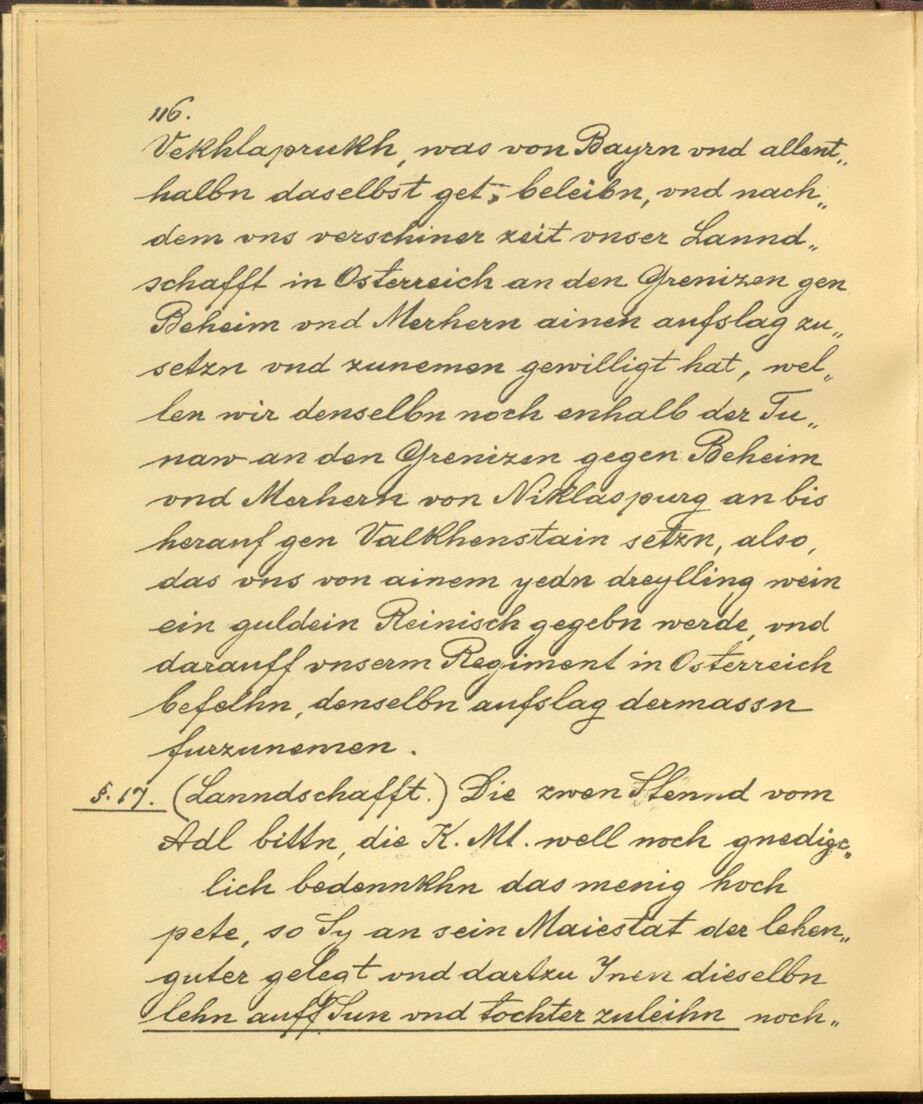 116.
Vekhlaprukh, was von Bayrn vnd allent„
halbn daselbst get, beleibn, vnd nach„
dem vns verschiner zeit vnser Lannd„
schafft in Osterreich an den Grenizen gen
Beheim vnd Merhern ainen aufslag zu„
setzn vnd zunemen gewilligt hat, wel„
len wir denselbn noch enhalb der Tu„
naw an den Grenizen gegen Beheim
vnd Merhern von Niklaspurg an bis
herauf gen Valkhenstain setzn, also,
das vns von ainem yedn dreylling wein
ein guldein Reinisch gegebn werde, vnd
darauff vnserm Regiment in Osterreich
befelhn, denselbn aufslag dermassn
furzunemen.
§. 17. (Lanndschafft.) Die zwen Stennd vom
Adl bittn, die K. Mt. well noch gnedig„
lich bedennkhn das menig hoch
pete, so Sy an sein Maiestat der lehen„
guter gelegt vnd dartzu Inen dieselbn
lehn auff Sun vnd tochter zuleihn noch„